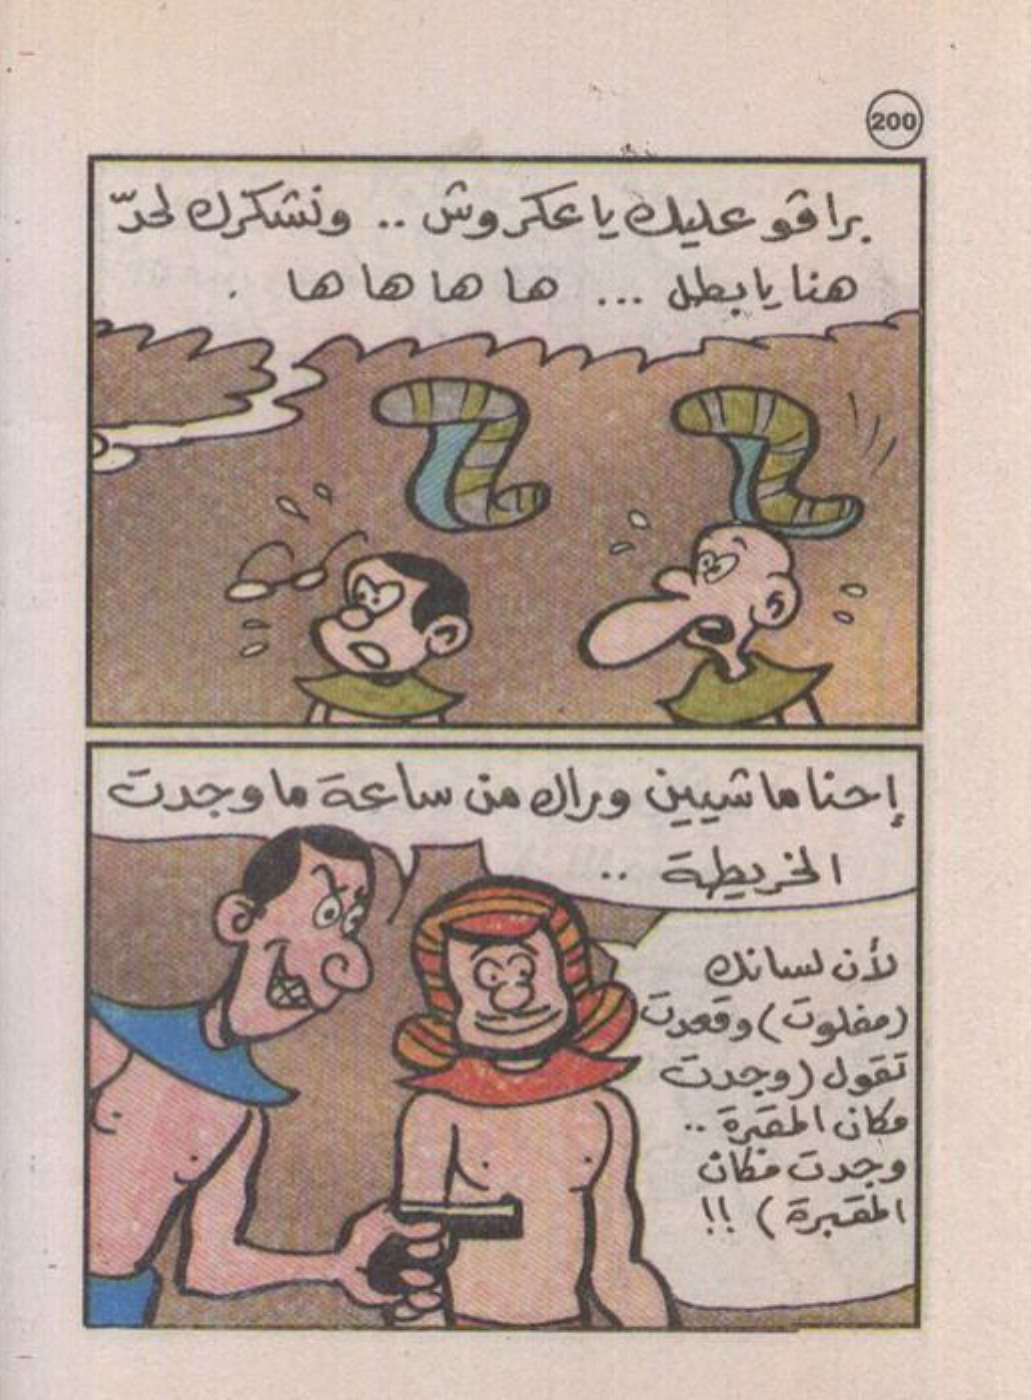 200
براڤو عليك يا عكروش .. ونشكرك لحدّ
هنا يا بطل ... ها ها ها ها .
إحنا ماشيين وراك من ساعة ما وجدت
الخريطة ..
لأن لسانك
(مفلوت) وقعدت
تقول (وجدت
مكان المقبرة ..
وجدت مكان
المقبرة) !!